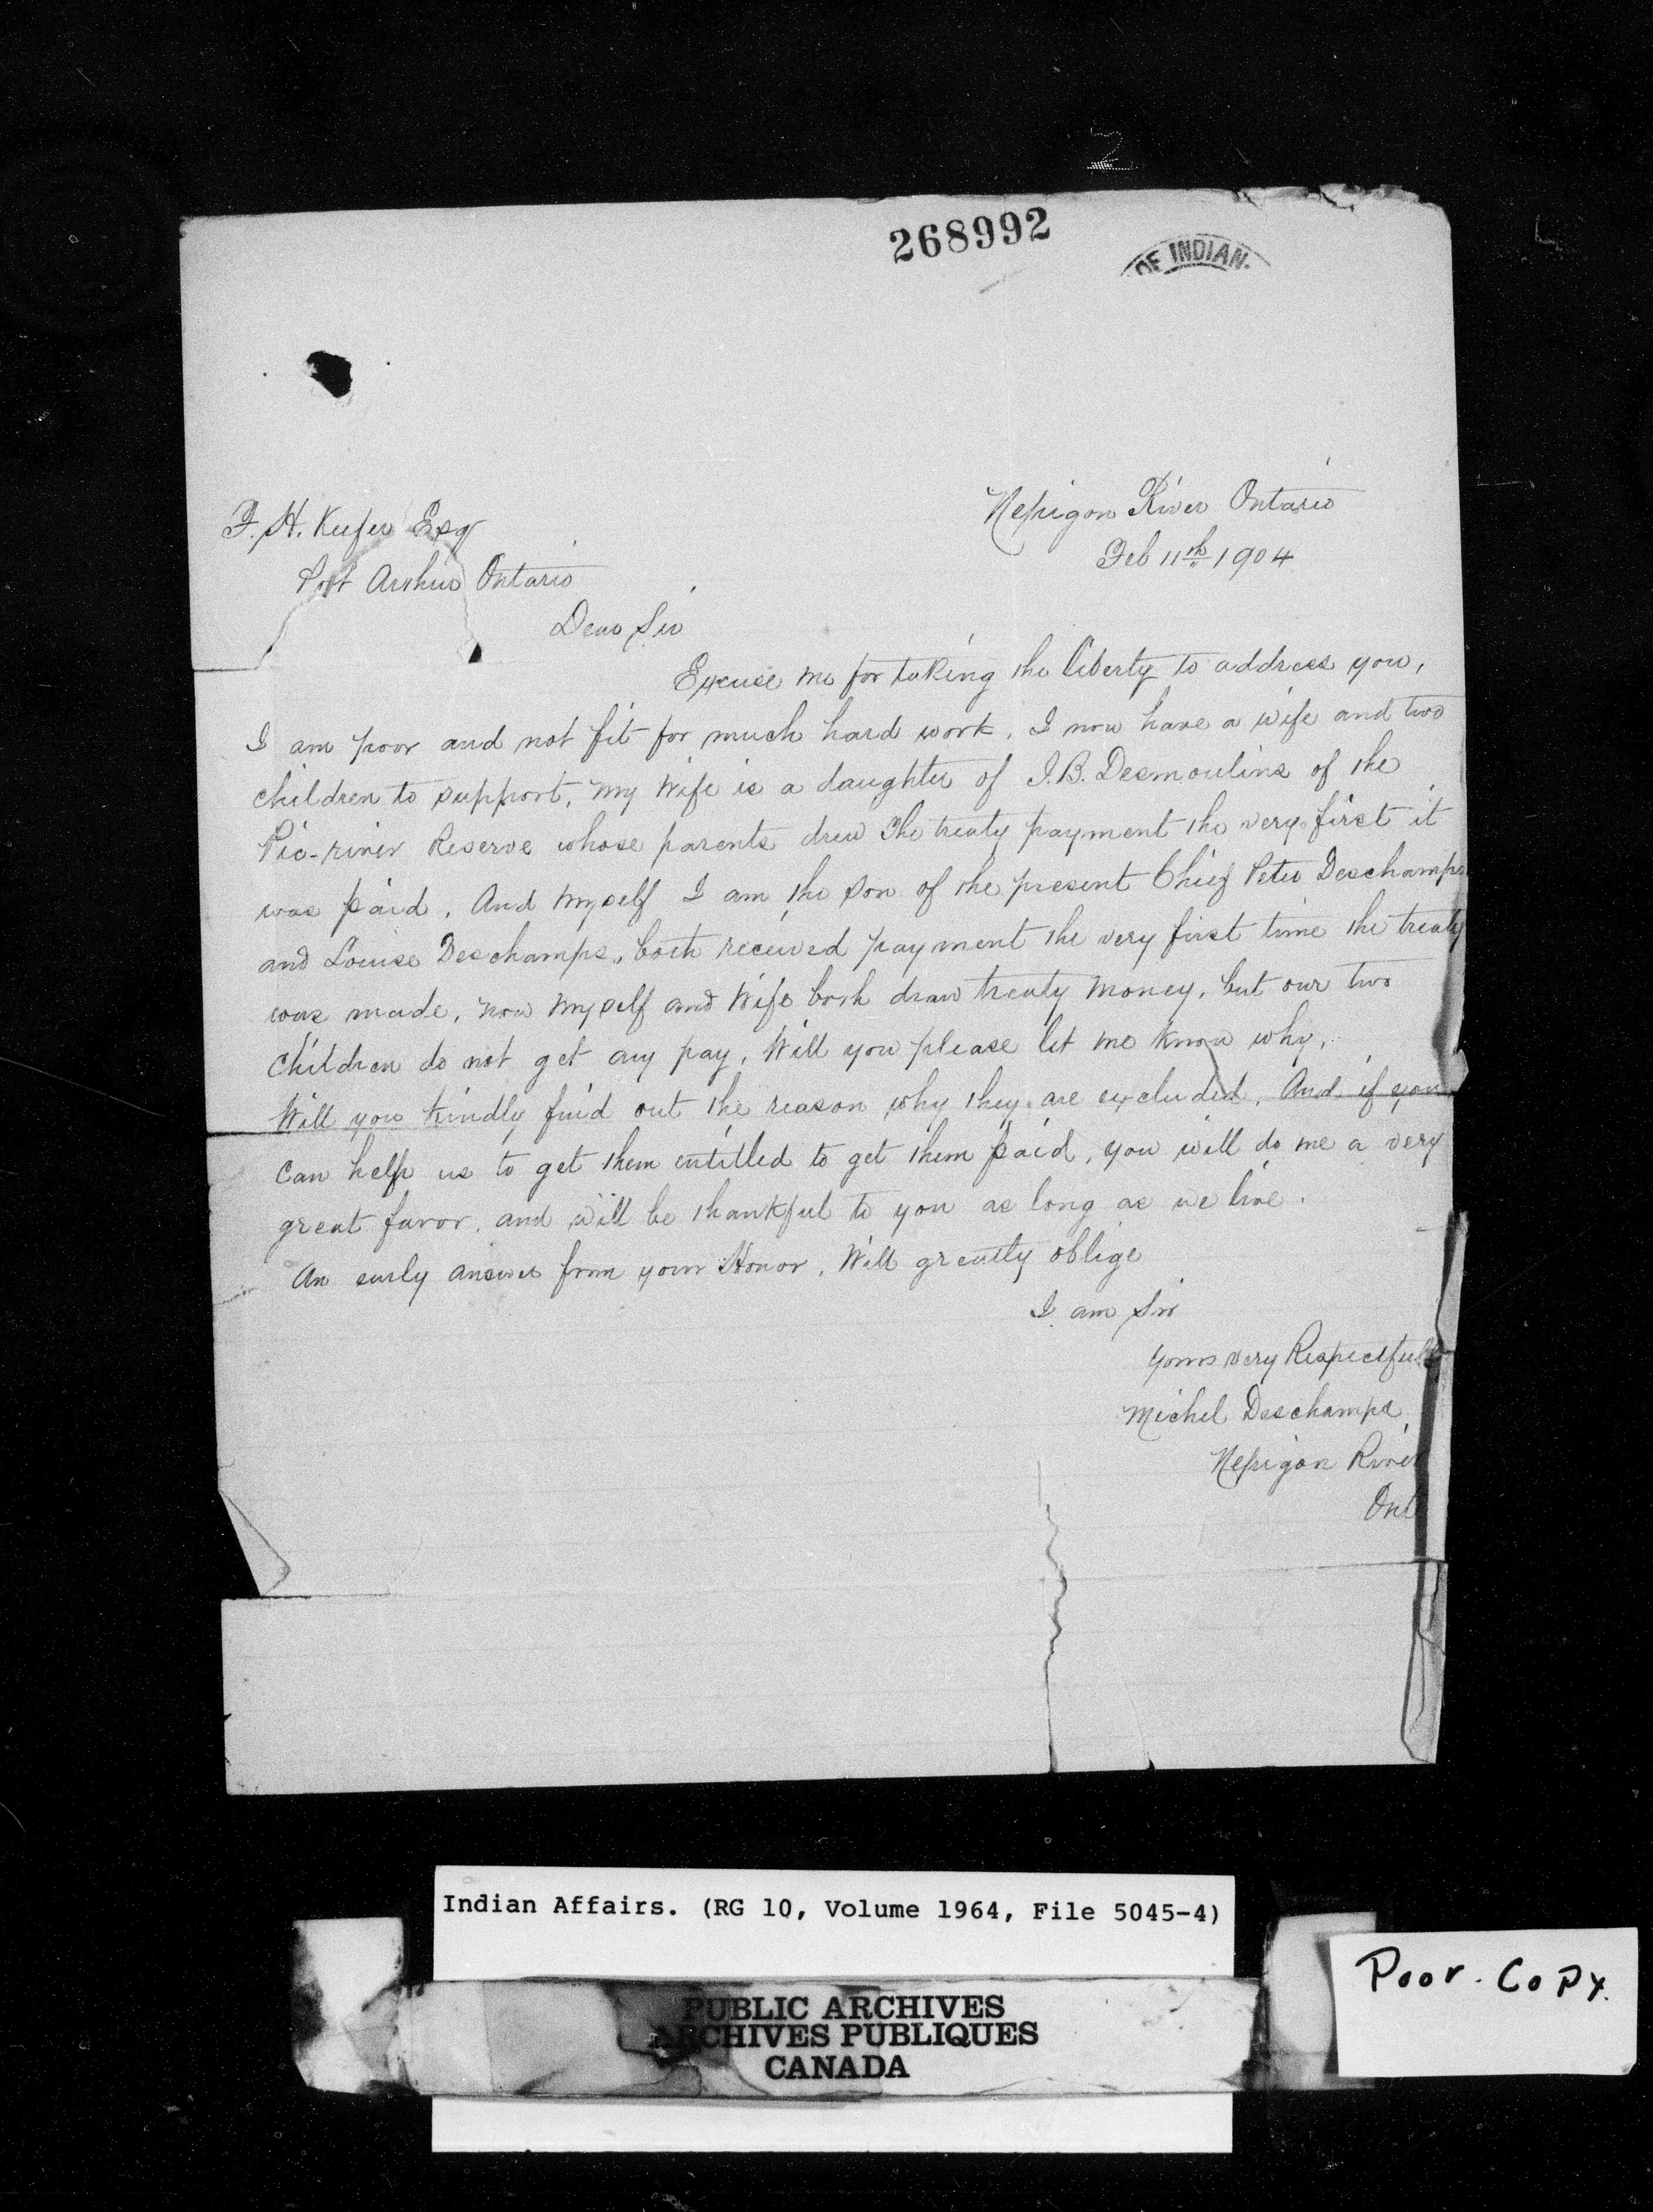 268992
OF INDIAN
Nepigon River Ontario
Feb 11th 1904
F. H. Keefer Esqr
Port Arthur Ontario
Dear Sir
Excuse me for taking the liberty to address you,
I am poor and not fit for much hard work. I now have a wife and two
children to support. My Wife is a daughter of J.B. Desmoulins of the
Pic-river Reserve whose parents drew The treaty payment the very first it
was paid. And Myself I am the Son of the present Chief Peter Deschamps
and Louise Deschamps, both received payment the very first time the treaty
was made. now Myself and Wife both draw treaty Money, but our two
children do not get any pay. Will you please let me know why.
Will you kindly find out the reason why they are excluded. And if you
can help us to get them intitled to get them paid, you will do me a very
great favor. and will be thankful to you as long as we live.
An early answer from your Honor, Will greatly oblige
I am Sir
yours very Respectfully
Michel Deschamps
Nepigon River
Ont
Indian Affairs. (RG 10, Volume 1964, File 5045-4)
PUBLIC ARCHIVES
ARCHIVES PUBLIQUES
CANADA
Poor. Copy.